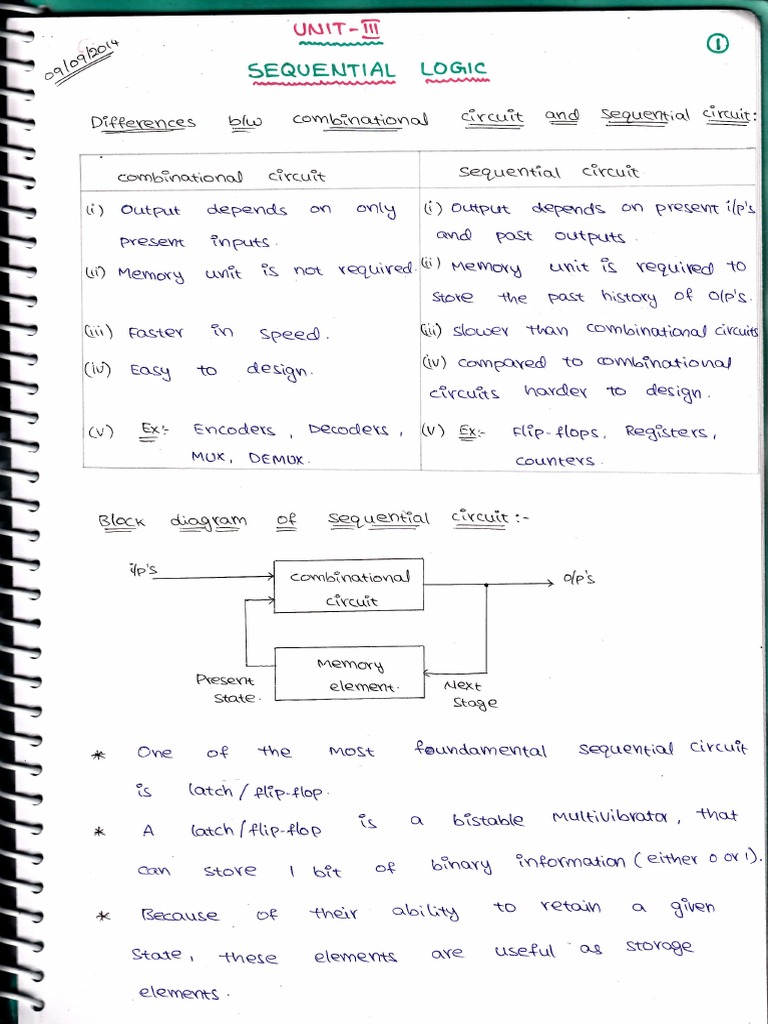 09/09/2014
UNIT-III
1
SEQUENTIAL LOGIC
Differences b/w combinational circuit and sequential circuit:
combinational circuit
sequential circuit
(i) Output depends on only
present inputs.
(i) Output depends on present i/p's
and past outputs.
(ii) Memory unit is not required.
(ii) Memory unit is required to
store the past history of o/p's.
(iii) Faster in speed.
(iii) slower than combinational circuits
(iv) Easy to design.
(iv) compared to combinational
circuits harder to design.
(v) Ex:- Encoders, Decoders,
MUX, DEMUX.
(v) Ex:- Flip-flops, Registers,
counters.
Block diagram of sequential circuit:-
i/p's
combinational
circuit
o/p's
Memory
element.
Present
state.
Next
stage
* One of the most foundamental sequential circuit
is latch/flip-flop.
* A latch/flip-flop is a bistable multivibrator, that
can store 1 bit of binary information (either 0 or 1).
* Because of their ability to retain a given
state, these elements are useful as storage
elements.